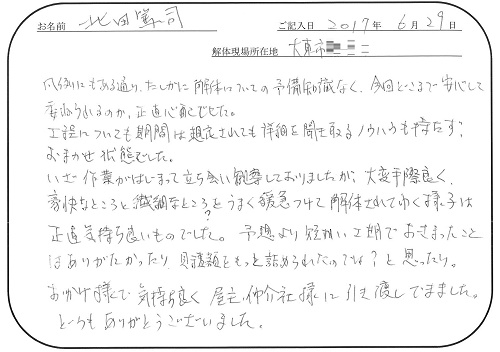 お名前 北田篤司 ご記入日 2017年 6月 29日
解体現場所在地 大東市
凡例にもある通り、たしかに解体についての予備知識なく、今回どこまで安心して
委ねられるのか、正直心配でした。
工程についても期間は想定されても詳細を聞き取るノウハウも持たず、
おまかせ状態でした。
いざ作業がはじまって立ち会い観察しておりましたが、大変手際良く、
豪快なところと繊細なところをうまく緩急つけて解体されてゆく様子は
?
正直気持ち良いものでした。予想より短かい工期でおさまったこと
はありがたかったり、見積額をもっと詰められたのでは?と思ったり。
おかげ様で気持ち良く 屋主、仲介社様に引き渡しできました。
どうもありがとうございました。